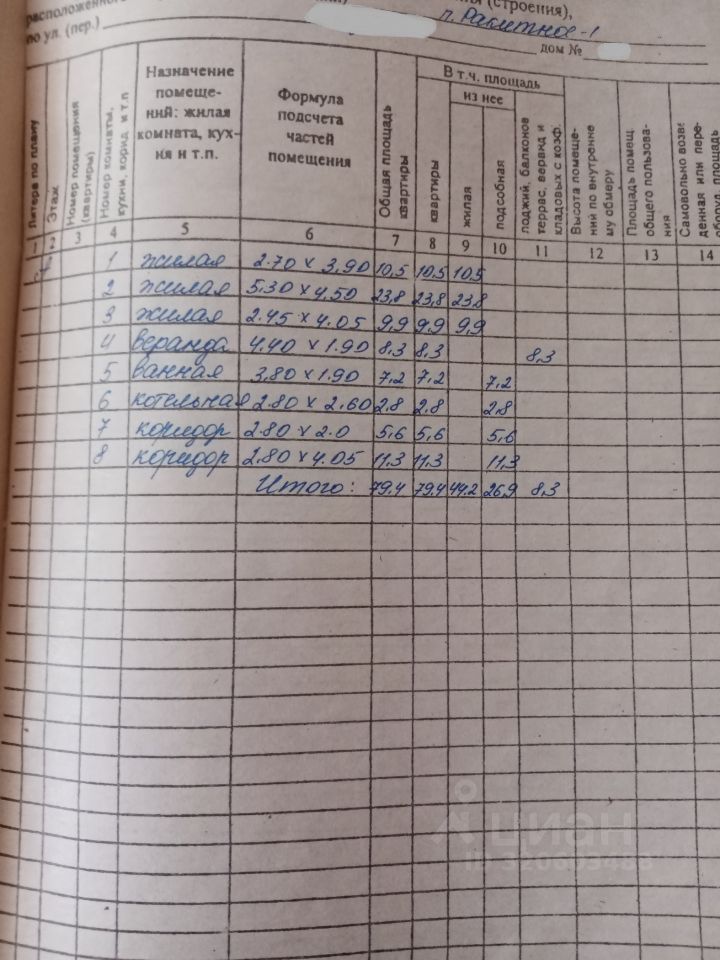 расположенного
(строения),
п. Ракитное-1
по ул. (пер.)
дом №
Литера по плану
Этаж
Номер помещения (квартиры)
Номер комнаты, кухни, корид. и т.п
Назначение помеще-
ний: жилая
комната, кух-
ня и т.п.
Формула
подсчета
частей
помещения
Общая площадь квартиры
В т.ч. площадь
квартиры
из нее
жилая
подсобная
лоджий, балконов террас, веранд и кладовых с коэф.
Высота помеще-
ний по внутренне
му обмеру
Площадь помещ.
общего пользова-
ния
Самовольно возве
денная или пере-
оборуд. площадь
1 2 3 4 5 6 7 8 9 10 11 12 13 14
1 жилая 2.70 x 3,90 10,5 10,5 10,5
2 жилая 5,30 x 4,50 23,8 23,8 23,8
3 жилая 2.45 x 4.05 9,9 9,9 9,9
4 веранда 4,40 x 1.90 8,3 8,3 8,3
5 ванная 3,80 x 1.90 7,2 7,2 7,2
6 котельная 2.80 x 2.60 2,8 2,8 2,8
7 коридор 2.80 x 2.0 5,6 5,6 5,6
8 коридор 2,80 x 4.05 11,3 11,3 11,3
Итого: 79,4 79,4 44,2 26,9 8,3
циан